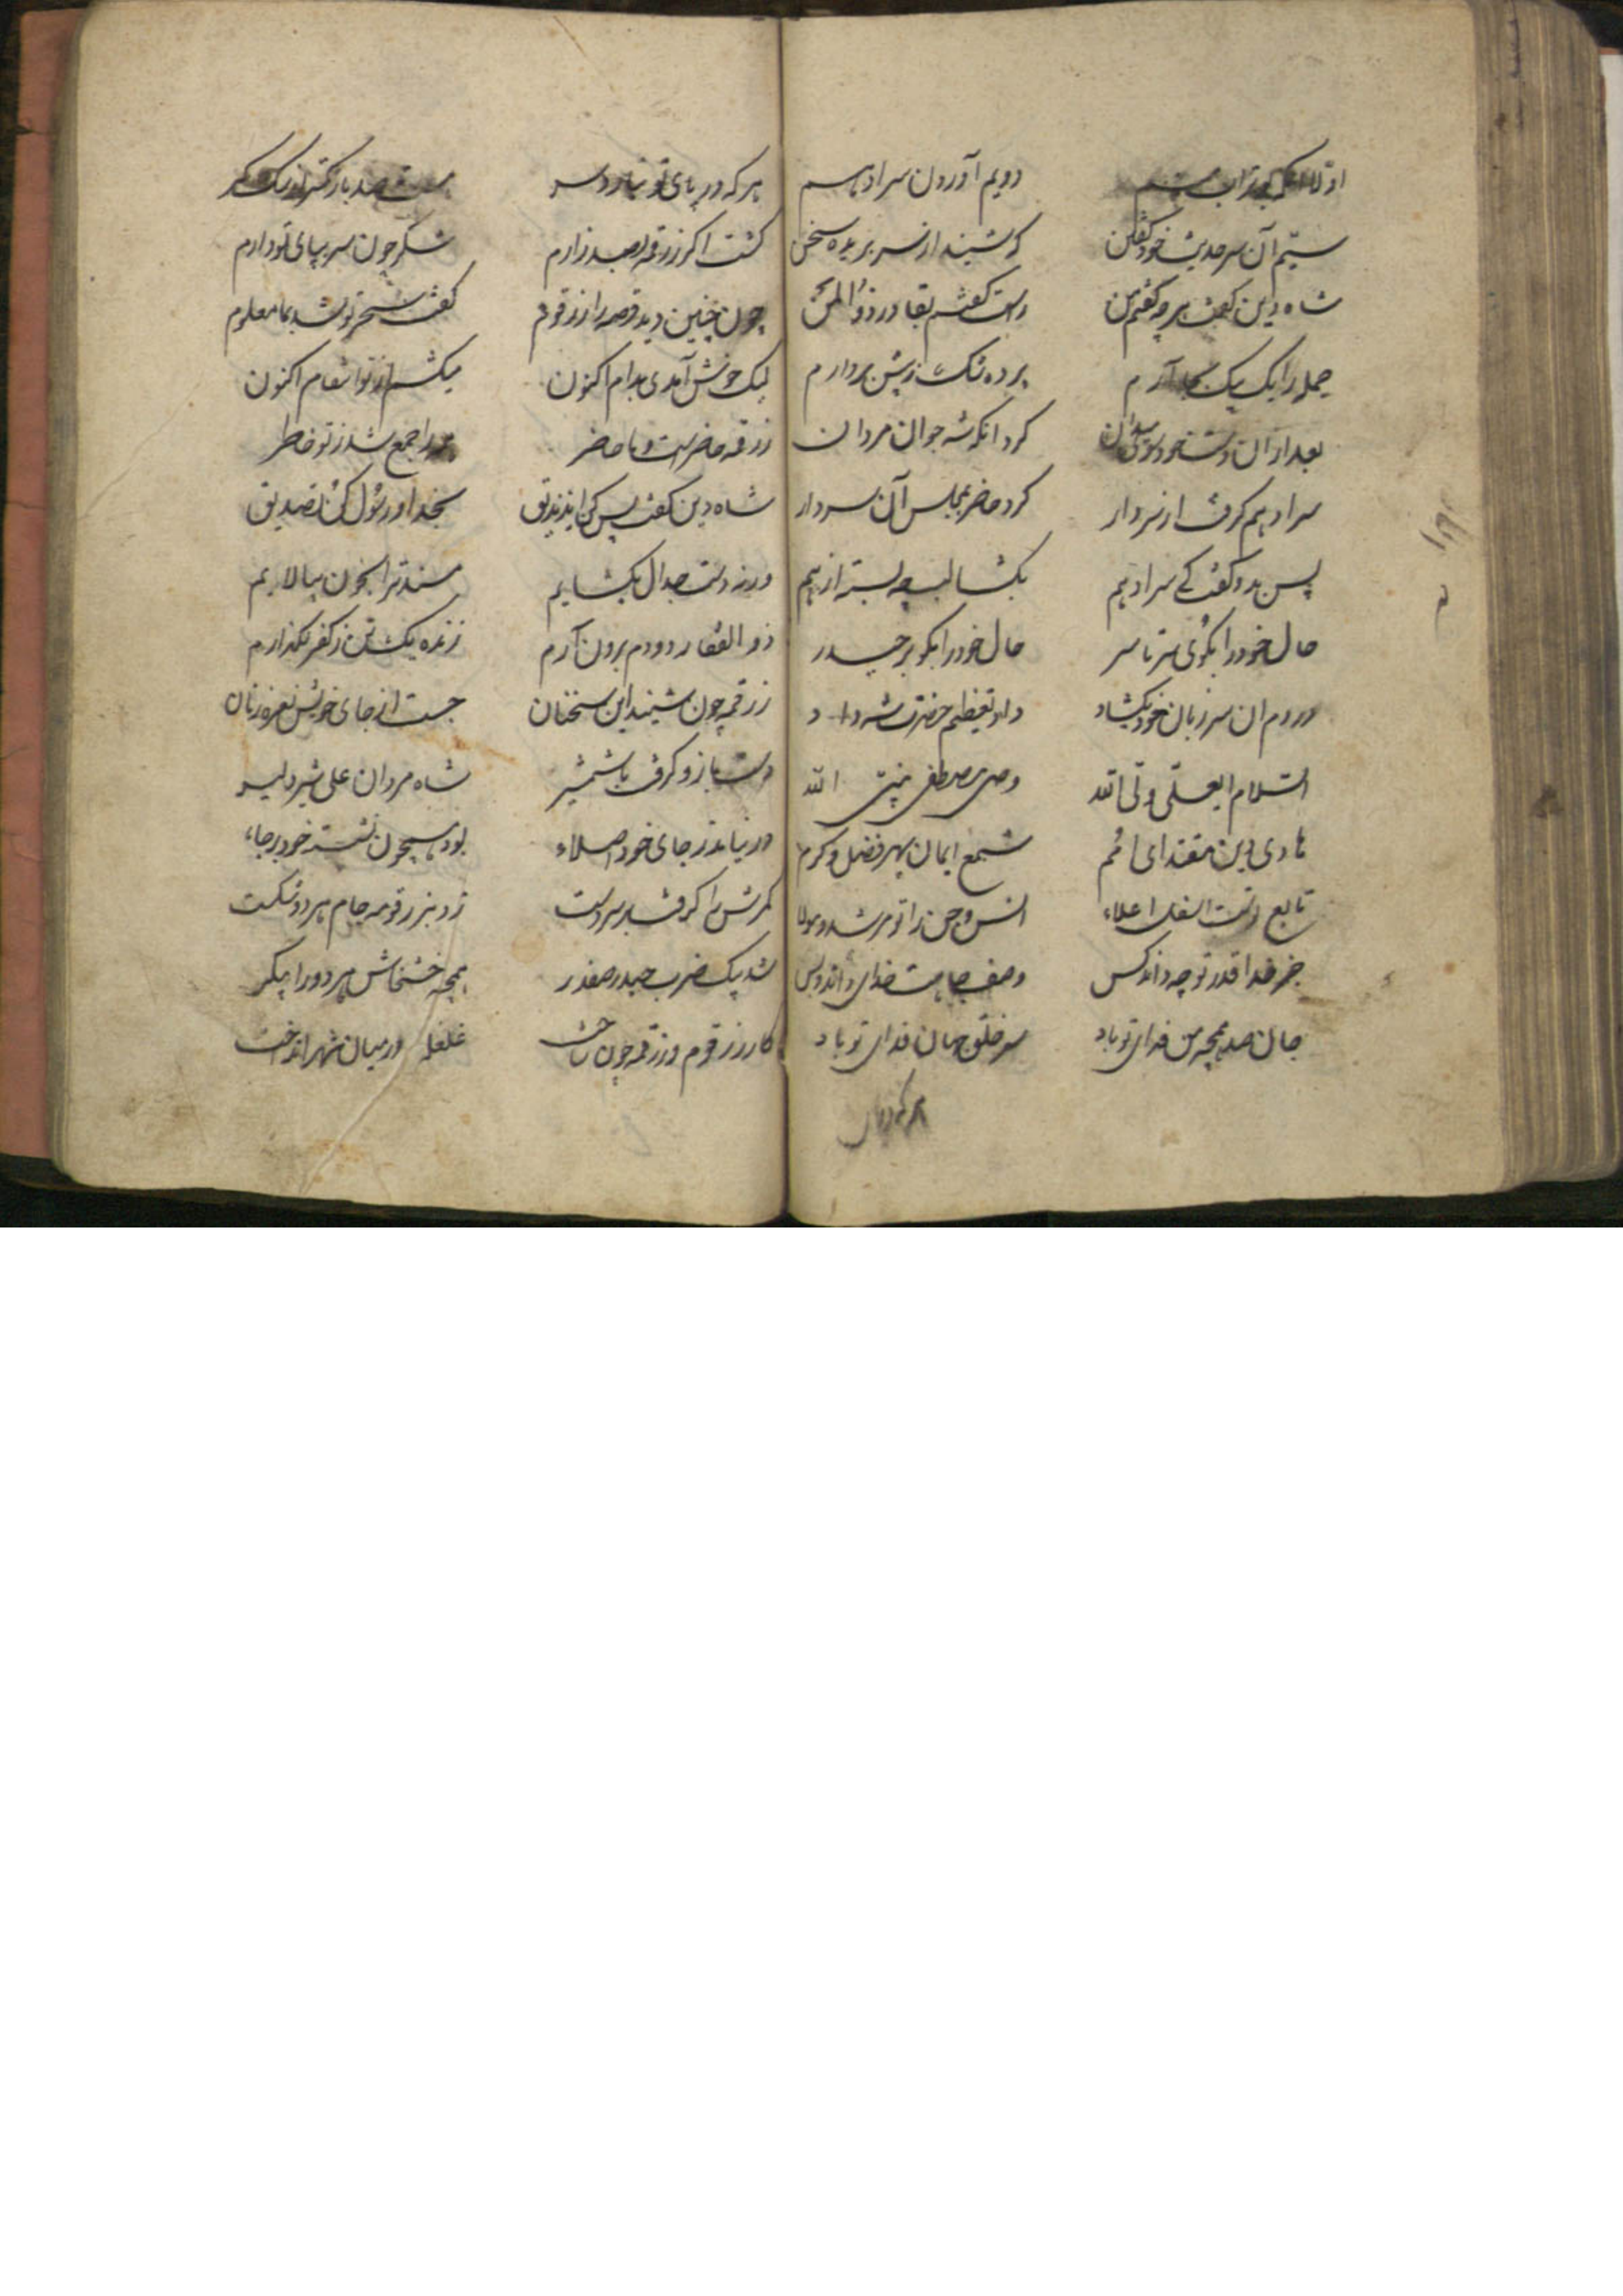 دویم آوردن سر ادهم
سیّم آن سر حدیث خود گفتن که شنید از سر بریده سخن
شاه دین گفت هر چه گفتم من راست گفتم بقادر ذوالمن
جمله را یک بیک بجا آرم پرده شک ز پیش بردارم
بعد از آن دست خود کرد آنکه شه جوان مردان
سر ادهم گرفت از سردار کرد حاضر بمجلس آن سردار
پس بدو گفت کی سر ادهم بگشا لب چه بسته از بیم
حال خود را بگوی سر تا سر حال خود را بگو بر حیدر
در دم آن سر زبان خود بگشاد داد تعظیم حضرت شه داد
السلام ایعلی ولی الله وصی مصطفی نبیّ الله
هادی دین مقتدای امم شمع ایمان سپهر فضل و کرم
تابع تست اسفل اعلاء انس و جن را تو مرشد و مولا
جز خدا قدر تو چه داند کس وصف جاهت خدای داند و بس
جان صد همچو من فدای تو باد سر خلق جهان فدای تو باد
هر که در پای
هر که در پای تو نیارد سر هست صد بار کمتر از سگ
گشت اکر زرقمه بصد زارم شکر چون سر بپای تو دارم
چون چنین دید قصه را زرقوم گفت سحر تو شد بما معلوم
لیک خوش آمدی بدام اکنون میکشم از تو انتقام اکنون
زرقمه حاضرست و ما حاضر جمع شد ز تو خاطر
شاه دین گفت پس که ای زندیق بخدا و رسول کن تصدیق
ورنه دست جدال بگشایم مسندت را بخون بیالایم
ذوالفقار دو دم برون آرم زنده یکتن ز کفر نگذارم
زرقمه چون شنید این سخنان جست از جای خویش نعره زنان
دست و بازو گرفت با شمشیر شاه مردان علی شیر دلیر
در نیامد ز جای خود اصلاء بود همچون نشسته خود بر جاء
کمرش را گرفت بر سر دست زد بزرقومه جام هر دو شکست
شد بیک ضرب حیدر صفدر همچو خشخاش هر دو را پیکر
کار زرقوم و زرقمه چون ساخت غلغله در میان شهر انداخت